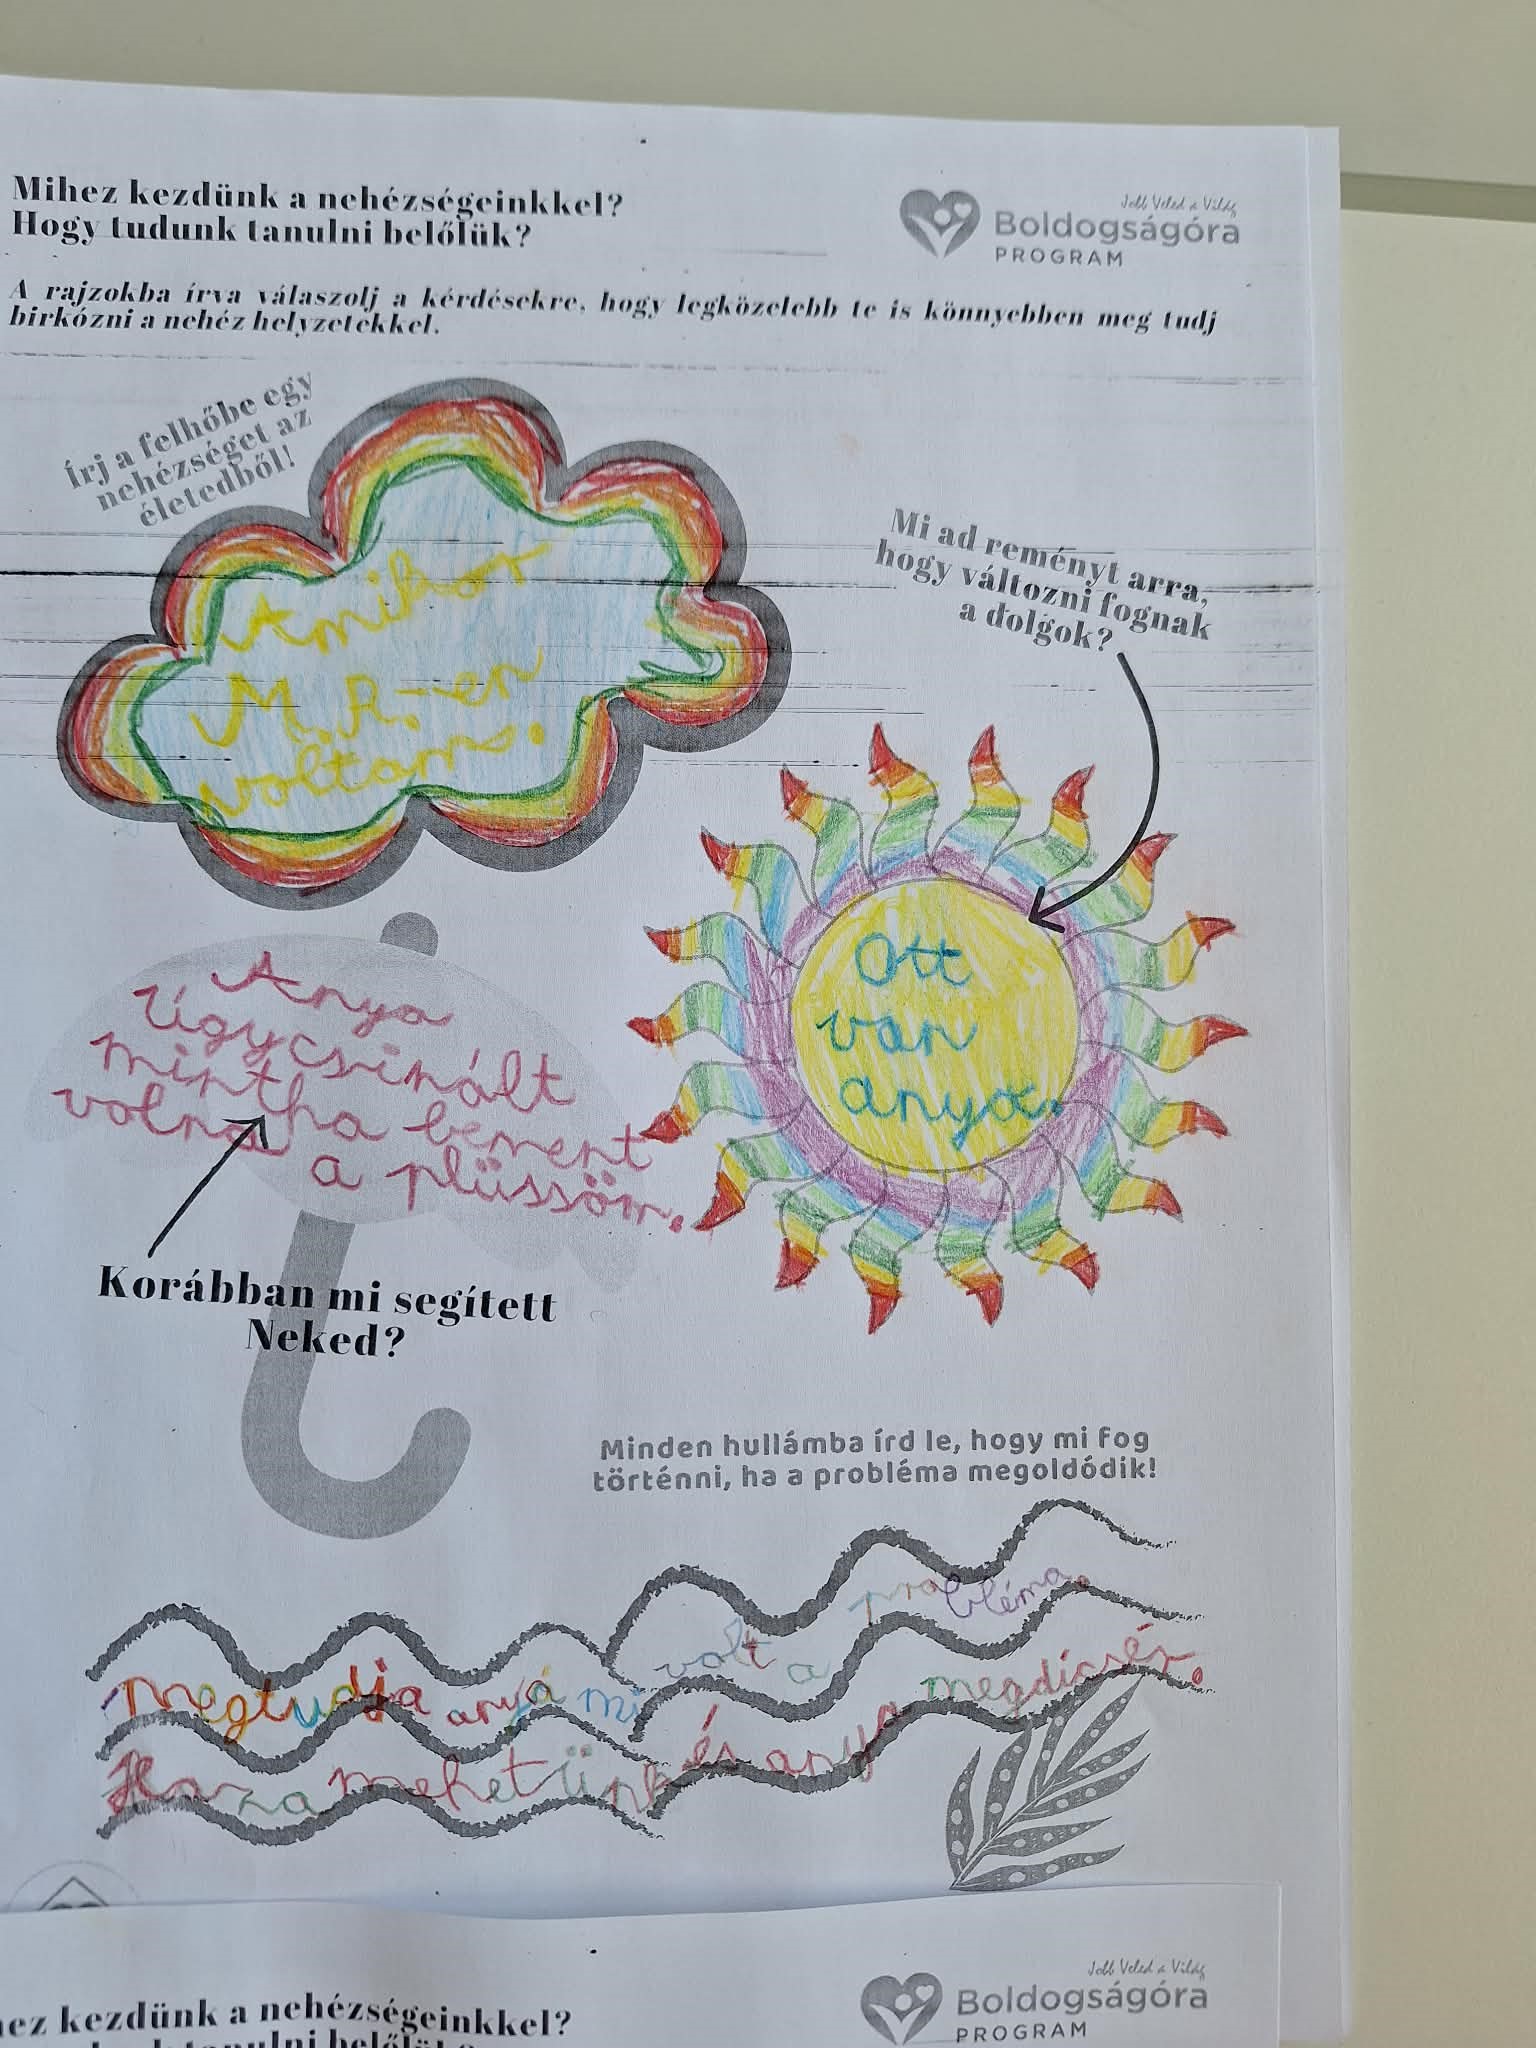 Mihez kezdünk a nehézségeinkkel?
Hogy tudunk tanulni belőlük?
Jobb Veled a Világ
Boldogságóra
PROGRAM
A rajzokba írva válaszolj a kérdésekre, hogy legközelebb te is könnyebben meg tudj
birkózni a nehéz helyzetekkel.
Írj a felhőbe egy
nehézséget az
életedből!
Amikor
M.R.-en
voltam.
Mi ad reményt arra,
hogy változni fognak
a dolgok?
Ott
van
anya.
Anya
Úgycsinált
mintha bement
volna
a plüssöm.
Korábban mi segített
Neked?
Minden hullámba írd le, hogy mi fog
történni, ha a probléma megoldódik!
megtudja anya mi volt a probléma.
Haza mehetünk és anya megdicsér.
Jobb Veled a Világ
Boldogságóra
PROGRAM
ez kezdünk a nehézségeinkkel?
tanulni belőlük?